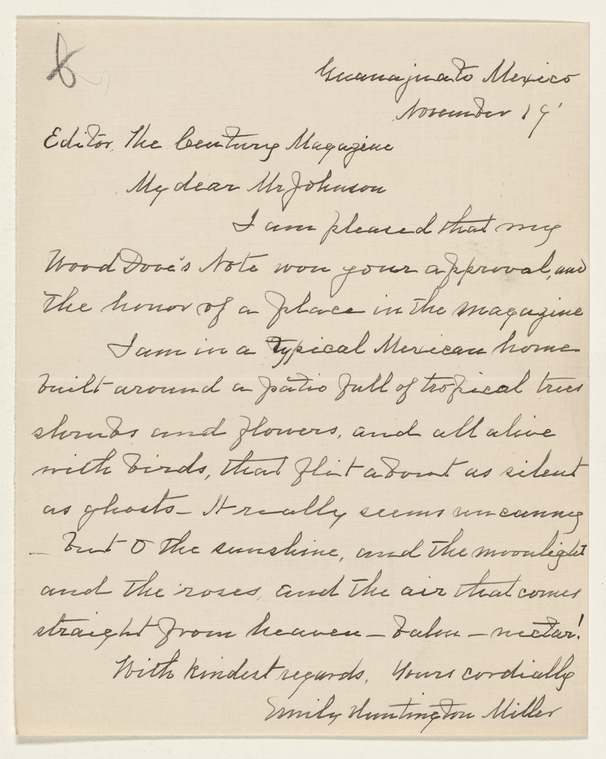 Guanajuato Mexico
November 19'
Editor. The Century Magazine
My dear Mr Johnson
I am pleased that my
Wood Dove's Note won your approval, and
the honor of a place in the magazine
I am in a typical Mexican home
built around a patio full of tropical trees
shrubs and flowers, and all alive
with birds, that flit about as silent
as ghosts - It really seems uncanny
- but O the sunshine, and the moonlight
and the roses, and the air that comes
straight from heaven - balm - nectar!
With kindest regards, Yours cordially
Emily Huntington Miller